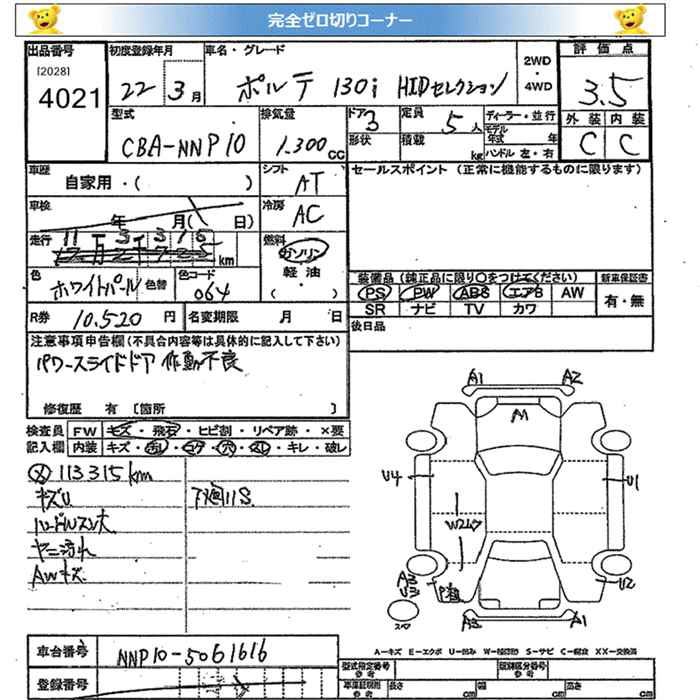 完全ゼロ切りコーナー
出品番号 初度登録年月 車名・グレード 2WD・4WD 評価点
[2028]
4021 22 3月 ポルテ 130i HIDセレクション 3.5
型式 排気量 ドア 3 定員 5人 ディーラー・並行 外装 内装
CBA-NNP10 1.300cc 形状 積載 kg モデル年式 年 ハンドル 左・右 C C
車歴 自家用・( ) シフト AT セールスポイント (正常に機能するものに限ります)
車検 年 月( 日) 冷房 AC
走行 11万3千315 km 燃料 ガソリン 軽油 ・( )
色 ホワイトパール 色替 色コード 064 装備品 (純正品に限り〇をつけてください) 新車保証書
PS PW ABS エアB AW 有・無
SR ナビ TV カワ
R券 10.520円 名変期限 月 日 後日品
注意事項申告欄(不具合内容等は具体的に記入して下さい)
パワースライドドア 作動不良
修復歴 有 [箇所 ]
検査員 FW キズ・飛石・ヒビ割・リペア跡・×要
記入欄 内装 キズ・汚レ・コゲ・穴・スレ・キレ・破レ
113315km
キズU 下廻りS
ハンドルスレ大
ヤニ汚れ
AWキズ
A1 A2
U4 U1
A3 U2
A3 A1
A-キズ E-エクボ U-凹み W-補修跡 S-サビ C-腐食 XX-交換済
車台番号 NNP10-5061616
登録番号
型式指定番号 参考 類別区分番号 参考
長さ cm 幅 cm 高さ cm